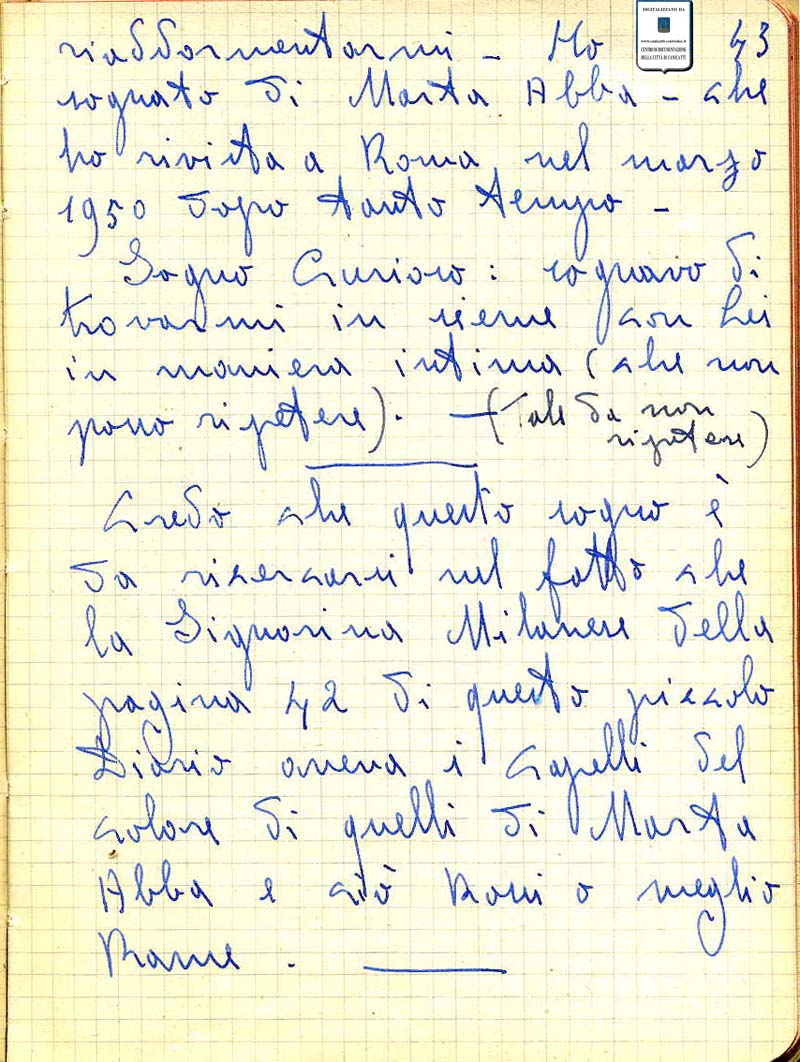 DIGITALIZZATO DA
CENTRO DI DOCUMENTAZIONE
DELLA CITTÀ DI CANICATTÌ
riaddormentarmi - Ho 43
sognato di Marta Abba - che
ho rivista a Roma nel marzo
1950 dopo tanto tempo -
Sogno Curioso: sognavo di
trovarmi in sieme con Lei
in maniera intima (che non
posso ripetere). - (Tale da non
ripetere)
Credo che questo sogno è
da ricercarsi nel fatto che
la Signorina Milanese della
pagina 42 di questo piccolo
Diario aveva i capelli del
colore di quelli di Marta
Abba e ciò Rossi o meglio
Rame.